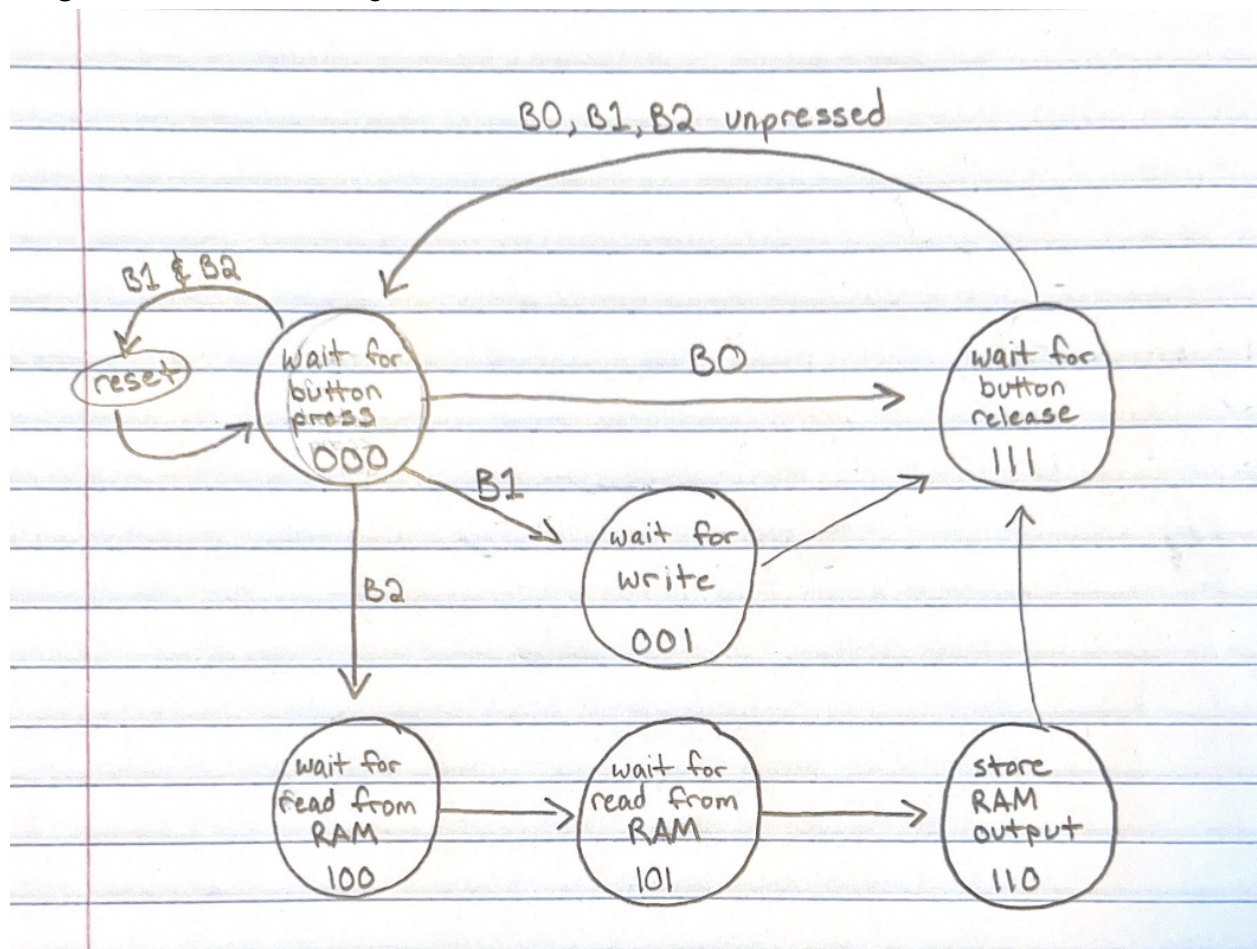 B0, B1, B2 unpressed
B1 & B2
reset
wait for
button
press
000
B0
wait for
button
release
111
B1
wait for
write
001
B2
wait for
read from
RAM
100
wait for
read from
RAM
101
store
RAM
output
110